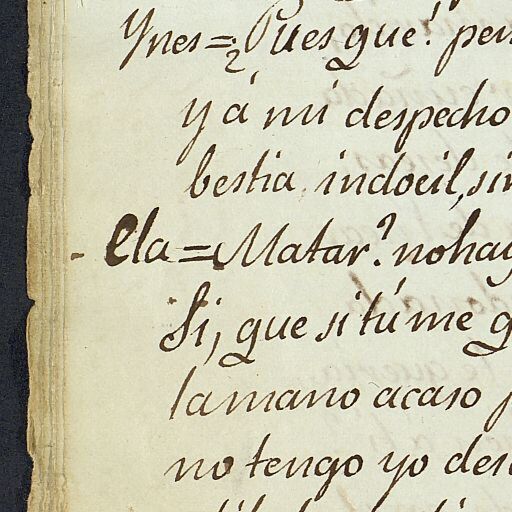 Ynes=¿Pues que! pen
y á mi despecho
bestia indocil, sin
Cla=Matar? no hay
Si, que si túme q
lamano acaso
no tengo yo des